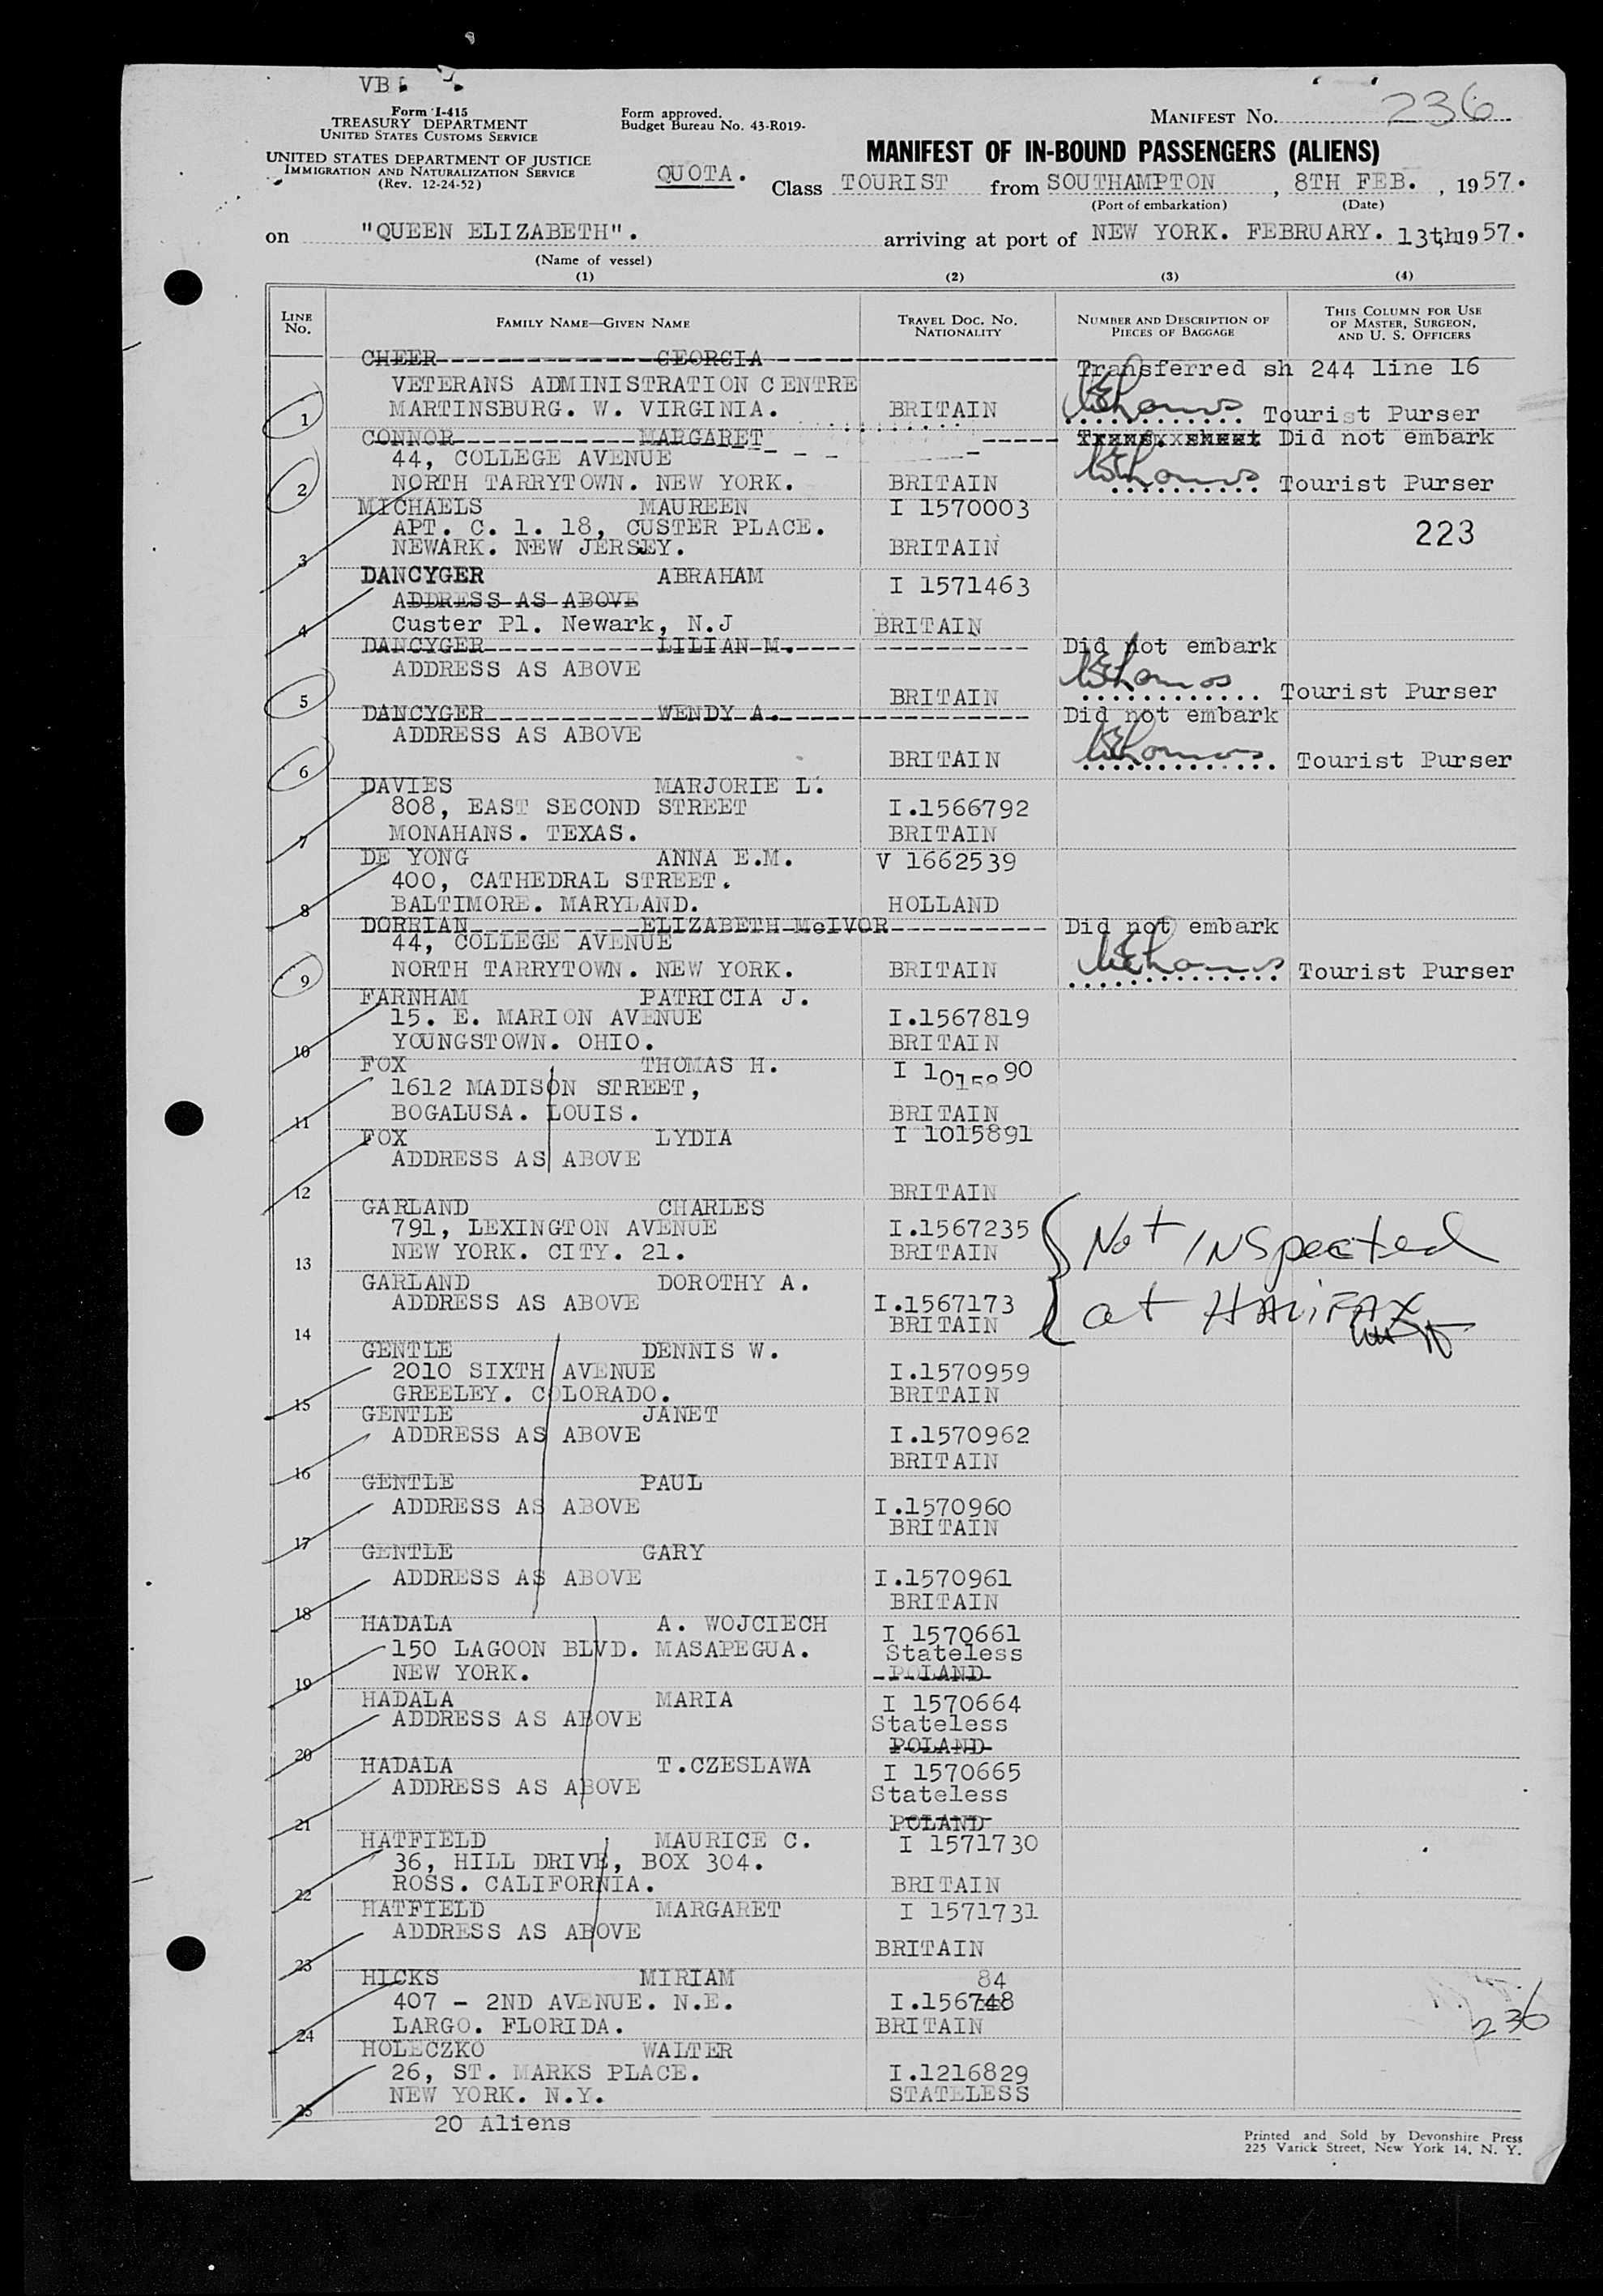 VB
Form I-415
TREASURY DEPARTMENT
UNITED STATES CUSTOMS SERVICE
UNITED STATES DEPARTMENT OF JUSTICE
IMMIGRATION AND NATURALIZATION SERVICE
(Rev. 12-24-52)
Form approved.
Budget Bureau No. 43-R019-
MANIFEST No. 236
MANIFEST OF IN-BOUND PASSENGERS (ALIENS)
QUOTA. Class TOURIST from SOUTHAMPTON, 8TH FEB., 1957.
(Port of embarkation) (Date)
on "QUEEN ELIZABETH". arriving at port of NEW YORK. FEBRUARY. 13th, 1957.
(Name of vessel)
(1) (2) (3) (4)
LINE No. FAMILY NAME—GIVEN NAME TRAVEL DOC. No. NATIONALITY NUMBER AND DESCRIPTION OF PIECES OF BAGGAGE THIS COLUMN FOR USE OF MASTER, SURGEON, AND U. S. OFFICERS
CHEER GEORGIA Transferred sh 244 line 16
VETERANS ADMINISTRATION CENTRE
1 MARTINSBURG. W. VIRGINIA. BRITAIN Tourist Purser
CONNOR MARGARET Did not embark
44, COLLEGE AVENUE
2 NORTH TARRYTOWN. NEW YORK. BRITAIN Tourist Purser
MICHAELS MAUREEN I 1570003
APT. C. 1. 18, CUSTER PLACE. 223
3 NEWARK. NEW JERSEY. BRITAIN
DANCYGER ABRAHAM I 1571463
ADDRESS AS ABOVE
4 Custer Pl. Newark, N.J BRITAIN
DANCYGER LILIAN M. Did not embark
ADDRESS AS ABOVE
5 BRITAIN Tourist Purser
DANCYGER WENDY A. Did not embark
ADDRESS AS ABOVE
6 BRITAIN Tourist Purser
DAVIES MARJORIE L.
808, EAST SECOND STREET I.1566792
7 MONAHANS. TEXAS. BRITAIN
DE YONG ANNA E.M. V 1662539
400, CATHEDRAL STREET.
8 BALTIMORE. MARYLAND. HOLLAND
DORRIAN ELIZABETH McIVOR Did not embark
44, COLLEGE AVENUE
9 NORTH TARRYTOWN. NEW YORK. BRITAIN Tourist Purser
FARNHAM PATRICIA J.
15. E. MARION AVENUE I.1567819
10 YOUNGSTOWN. OHIO. BRITAIN
FOX THOMAS H. I 1015890
1612 MADISON STREET,
11 BOGALUSA. LOUIS. BRITAIN
FOX LYDIA I 1015891
ADDRESS AS ABOVE
12 BRITAIN
GARLAND CHARLES
791, LEXINGTON AVENUE I.1567235
13 NEW YORK. CITY. 21. BRITAIN Not INSpected
GARLAND DOROTHY A.
ADDRESS AS ABOVE I.1567173 at HALiFAX
14 BRITAIN
GENTLE DENNIS W.
2010 SIXTH AVENUE I.1570959
15 GREELEY. COLORADO. BRITAIN
GENTLE JANET
ADDRESS AS ABOVE I.1570962
16 BRITAIN
GENTLE PAUL
ADDRESS AS ABOVE I.1570960
17 BRITAIN
GENTLE GARY
ADDRESS AS ABOVE I.1570961
18 BRITAIN
HADALA A. WOJCIECH I 1570661
150 LAGOON BLVD. MASAPEGUA. Stateless
19 NEW YORK. POLAND
HADALA MARIA I 1570664
ADDRESS AS ABOVE Stateless
20 POLAND
HADALA T.CZESLAWA I 1570665
ADDRESS AS ABOVE Stateless
21 POLAND
HATFIELD MAURICE C. I 1571730
36, HILL DRIVE, BOX 304.
22 ROSS. CALIFORNIA. BRITAIN
HATFIELD MARGARET I 1571731
ADDRESS AS ABOVE
23 BRITAIN
HICKS MIRIAM 84
407 - 2ND AVENUE. N.E. I.156748
24 LARGO. FLORIDA. BRITAIN 236
HOLECZKO WALTER
26, ST. MARKS PLACE. I.1216829
25 NEW YORK. N.Y. STATELESS
20 Aliens
Printed and Sold by Devonshire Press
225 Varick Street, New York 14, N. Y.